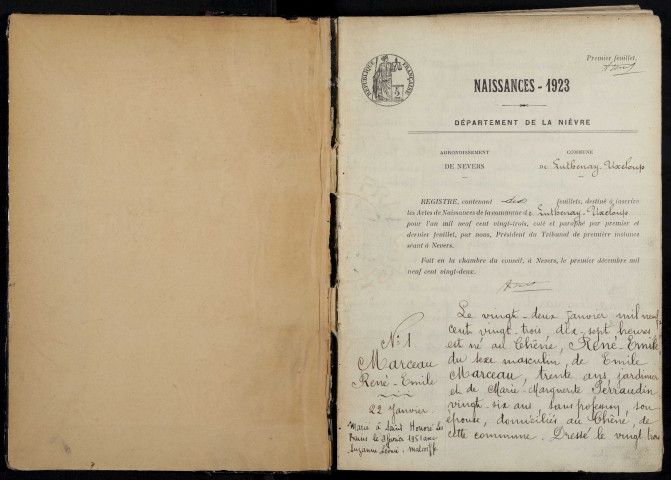 RÉPUBLIQUE FRANÇAISE
Premier feuillet.
NAISSANCES - 1923
DÉPARTEMENT DE LA NIÈVRE
ARRONDISSEMENT
DE NEVERS
COMMUNE
DE Luthenay-Uxeloup
REGISTRE, contenant dix feuillets, destiné à inscrire
les Actes de Naissances de la commune de Luthenay-Uxeloup
pour l'an mil neuf cent vingt-trois, coté et paraphé par premier et
dernier feuillet, par nous, Président du Tribunal de première instance
séant à Nevers.
Fait en la chambre du conseil, à Nevers, le premier décembre mil
neuf cent vingt-deux.
N° 1
Marceau
René-Emile
22 Janvier
Marié à Saint Honoré les
Bains le 3 février 1951 avec
Suzanne Léonie
Le vingt-deux janvier mil neuf
cent vingt-trois dix-sept heures
est né au Chêne, René-Emile
du sexe masculin, de Emile
Marceau, trente ans, jardinier
et de Marie-Marguerite Perraudin
vingt-six ans, sans profession, son
épouse, domiciliés au Chêne, de
cette commune. Dressé le vingt trois